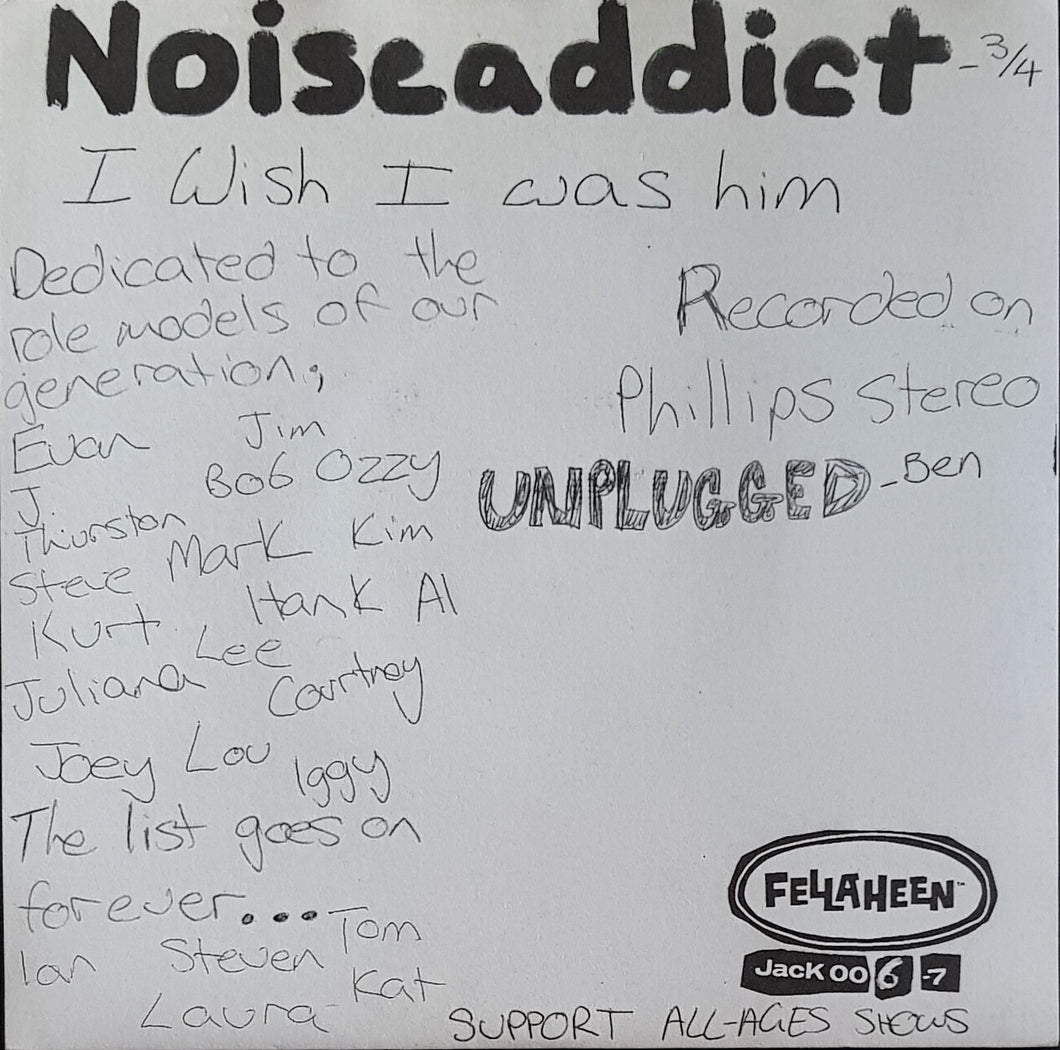 Noiseaddict - 3/4
I Wish I was him
Dedicated to the
role models of our
generation;
Evan Jim
J. Bob Ozzy
Thurston Mark Kim
Steve Hank Al
Kurt Lee
Juliana Courtney
Joey Lou Iggy
The list goes on
forever... Tom
Ian Steven Kat
Laura
Recorded on
Phillips Stereo
UNPLUGGED - Ben
FELLAHEEN™
Jack 00 6 -7
SUPPORT ALL-AGES SHOWS